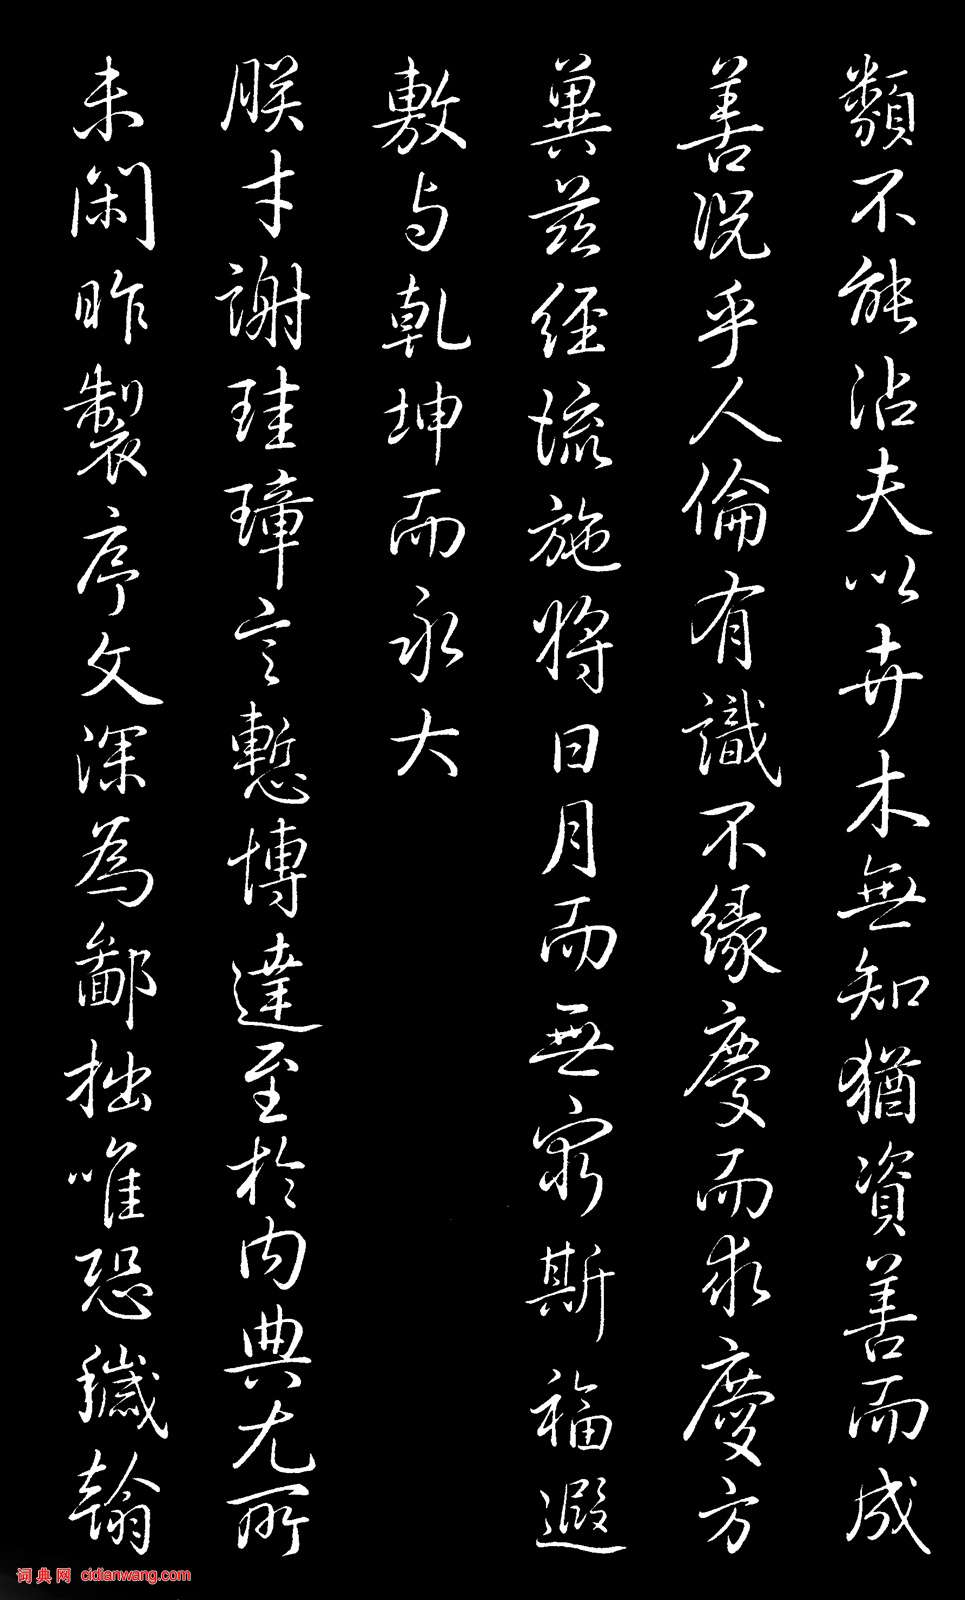 類不能沾夫以卉木無知猶資善而成
善況乎人倫有識不緣慶而求慶方
冀茲經流施將日月而無窮斯福遐
敷与乾坤而永大
朕才謝珪璋言慙博達至於內典尤所
未閑昨製序文深為鄙拙唯恐穢翰
词典网 cidianwang.com